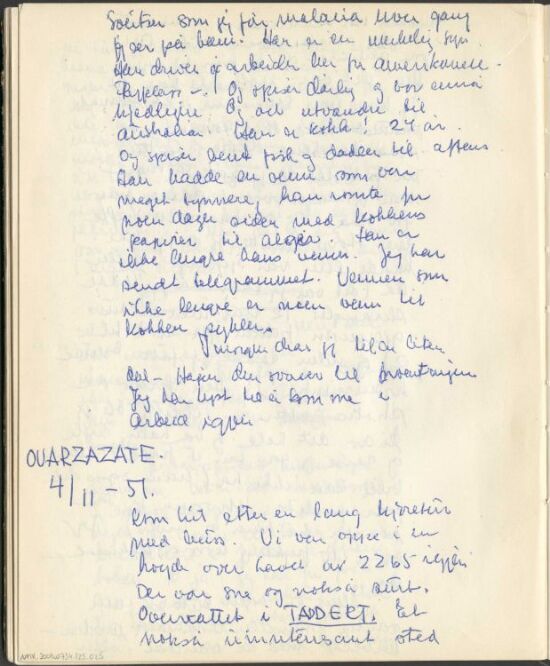 som jeg får malaria hver gang
jeg ser på ham. Her er en syn.
Han driver og arbeider her for amerikanerne.
Og spiser dårlig og bor ennå
Og vil utvandre til
Australia. Han er kokk! 24 år.
Og spiser fisk og dadler til aftens
Han hadde en venn som var
meget han rømte for
noen dager siden med kokkens
papirer til Alger. Han er
ikke lengre hans venn. Jeg har
sendt telegrammet. Vennen som
ikke lengre er noen venn til
kokken
I morgen drar jeg til en liten
dal – den svarer til
Jeg har lyst til å komme i
arbeid igjen
OUARZAZATE.
4/11 – 51.
Kom hit etter en lang kjøretur
med buss. Vi var oppe i en
høyde over havet av 2265
Der var sne og nokså surt.
Overnattet i TADDERT. Et
nokså uinteressant sted